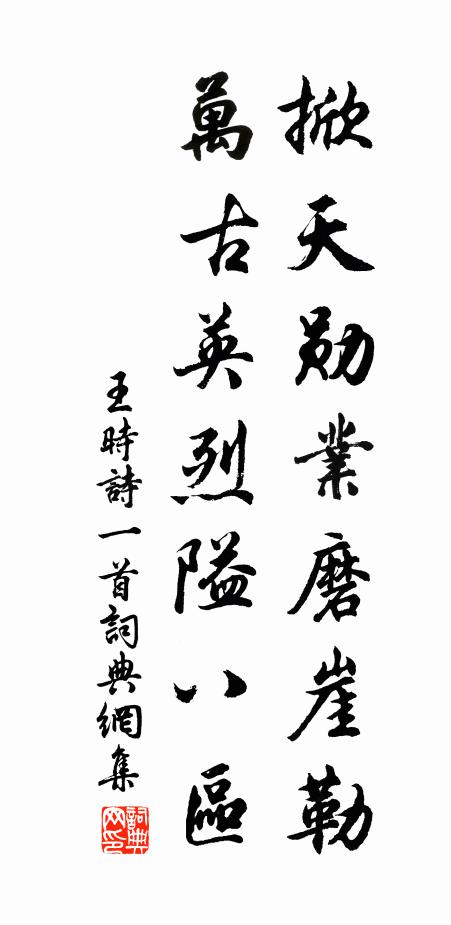 掀天勛業磨崖勒
萬古英烈隘八區
王時詩一首詞典網集
詞典網印